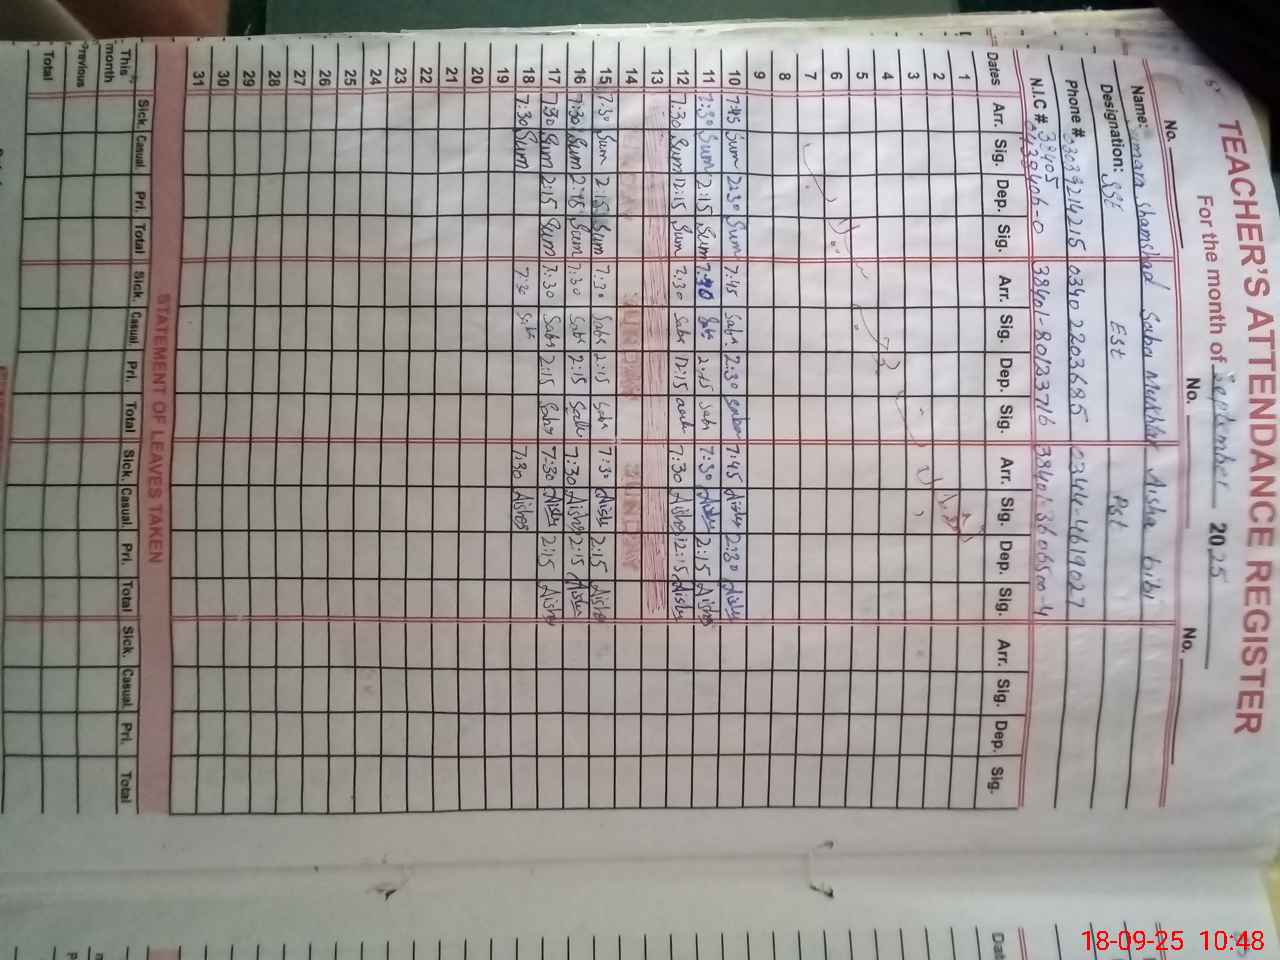 TEACHER'S ATTENDANCE REGISTER
For the month of September 2025
No. No. No.
Name: Shamshad Saba Mukhtar Aisha bibi
Designation: EST PST
Phone # 03039214215 0340 2203685 0344-4619027
N.I.C #
Dates Arr. Sig. Dep. Sig. Arr. Sig. Dep. Sig. Arr. Sig. Dep. Sig. Arr. Sig. Dep. Sig.
1
2
3
4
5
6
7
8
9
10 7:45 Sum 2:30 Sum 7:45 Saba 2:30 Saba 7:45 Aisha 2:30 Aisha
11 7:30 Sum 2:15 Sum 7:30 Saba 2:15 Saba 7:30 Aisha 2:15 Aisha
12 7:30 Sum 12:15 Sum 7:30 Saba 12:15 7:30 Aisha 12:15 Aisha
13
14 SUNDAY SUNDAY SUNDAY
15 7:30 Sum 2:15 Sum 7:30 Saba 2:15 Saba 7:30 Aisha 2:15 Aisha
16 7:30 Sum Sum 7:30 Saba 2:15 Saba 7:30 Aisha 2:15 Aisha
17 7:30 Sum 2:15 Sum 7:30 Saba 2:15 Saba 7:30 Aisha 2:15 Aisha
18 7:30 Sum 7:30 Saba 7:30 Aisha
19
20
21
22
23
24
25
26
27
28
29
30
31
STATEMENT OF LEAVES TAKEN
Sick. Casual. Pri. Total Sick. Casual. Pri. Total Sick. Casual. Pri. Total Sick. Casual. Pri. Total
This month
Previous
Total
18-09-25 10:48